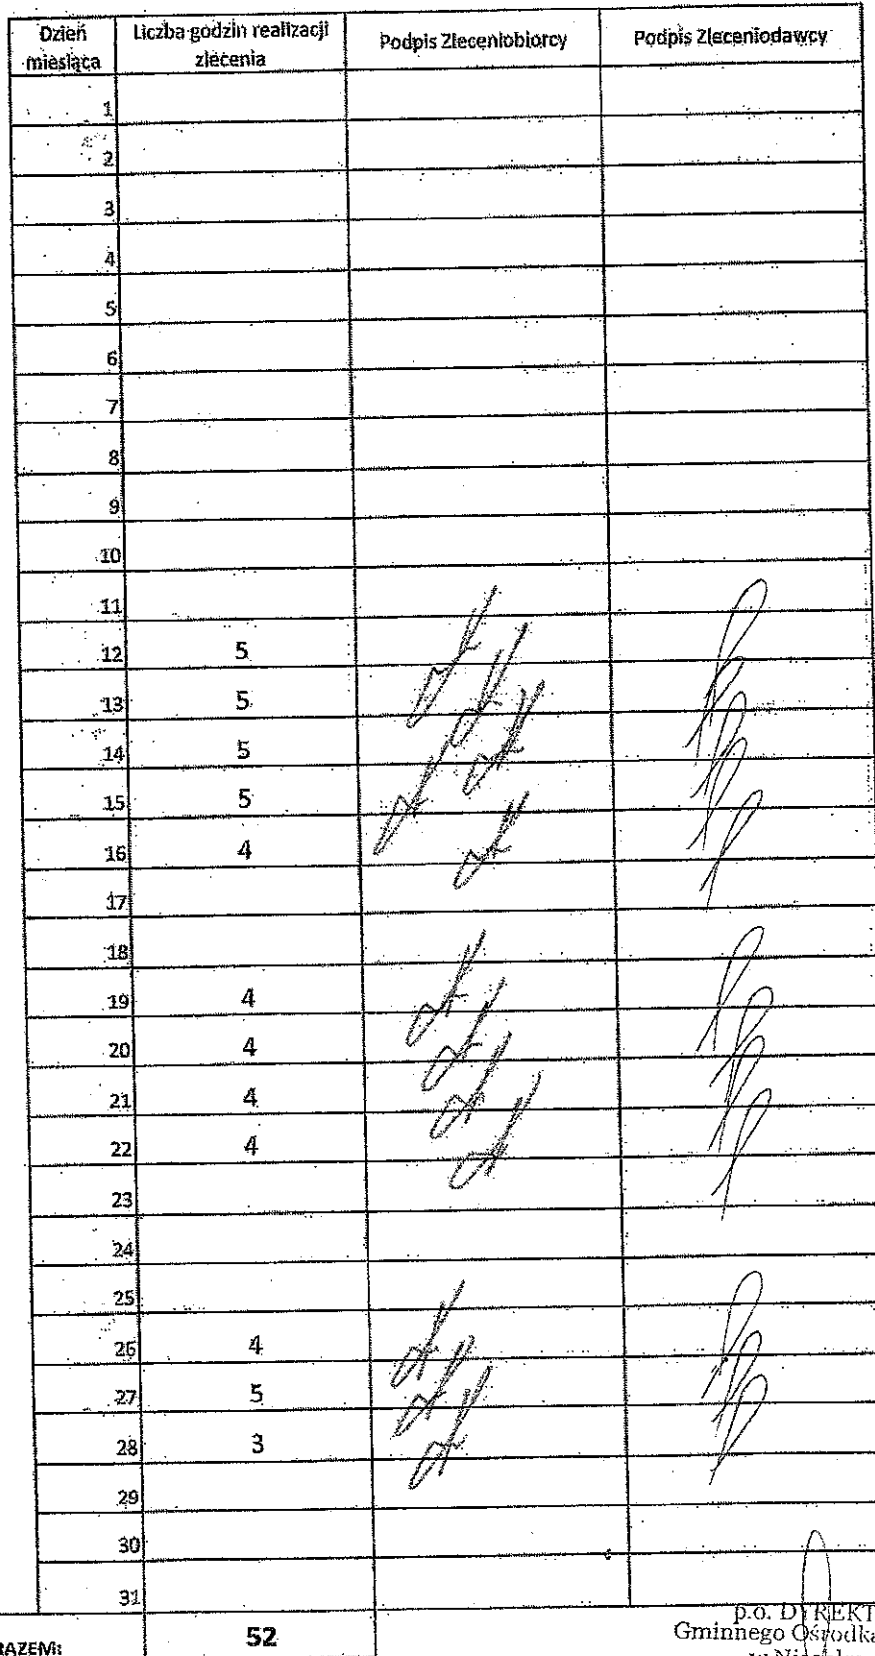 Dzień miesiąca Liczba godzin realizacji zlecenia Podpis Zleceniobiorcy Podpis Zleceniodawcy
1
2
3
4
5
6
7
8
9
10
11
12 5
13 5
14 5
15 5
16 4
17
18
19 4
20 4
21 4
22 4
23
24
25
26 4
27 5
28 3
29
30
31
RAZEM: 52
p.o. DYREKT
Gminnego Ośrodka